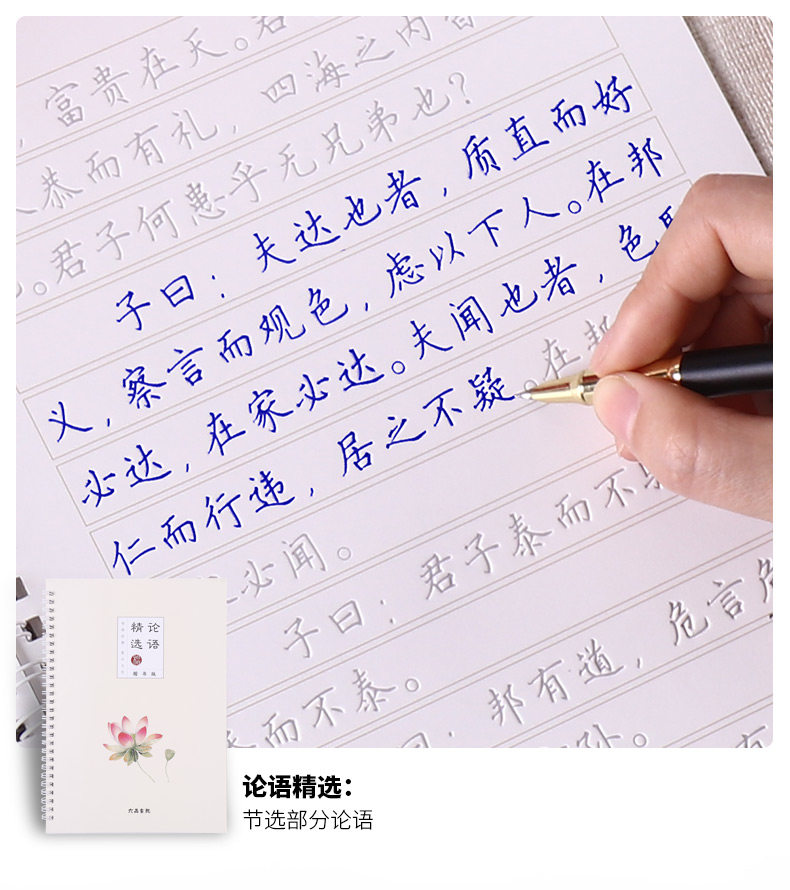 富贵在天。君
恭而有礼，四海之内皆
。君子何患乎无兄弟也？
子曰：夫达也者，质直而好
义，察言而观色，虑以下人。在邦
必达，在家必达。夫闻也者，色取
仁而行违，居之不疑。在邦
必闻。
子曰：君子泰而不骄
而不泰。
曰：邦有道，危言危
论语
精选
六品书院
论语精选：
节选部分论语